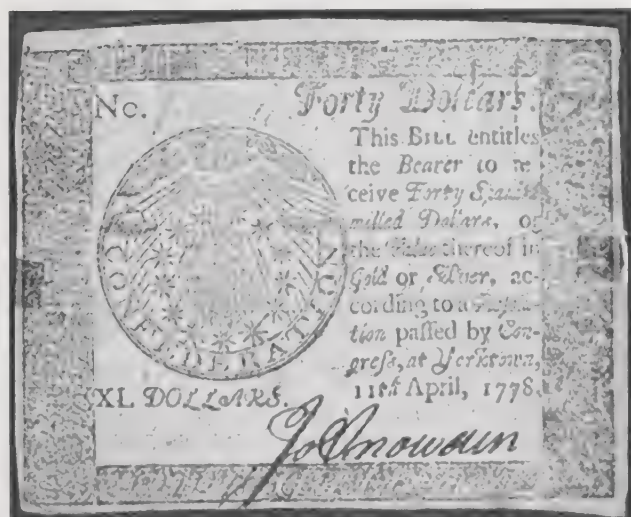 No.
Forty Dollars.
This BILL entitles
the Bearer to re-
ceive Forty Spanish
milled Dollars, or
the Value thereof in
Gold or Silver, ac-
cording to a Resolu-
tion paſſed by Con-
greſs, at Yorktown,
11th April, 1778.
CONFEDERATION
XL DOLLARS.